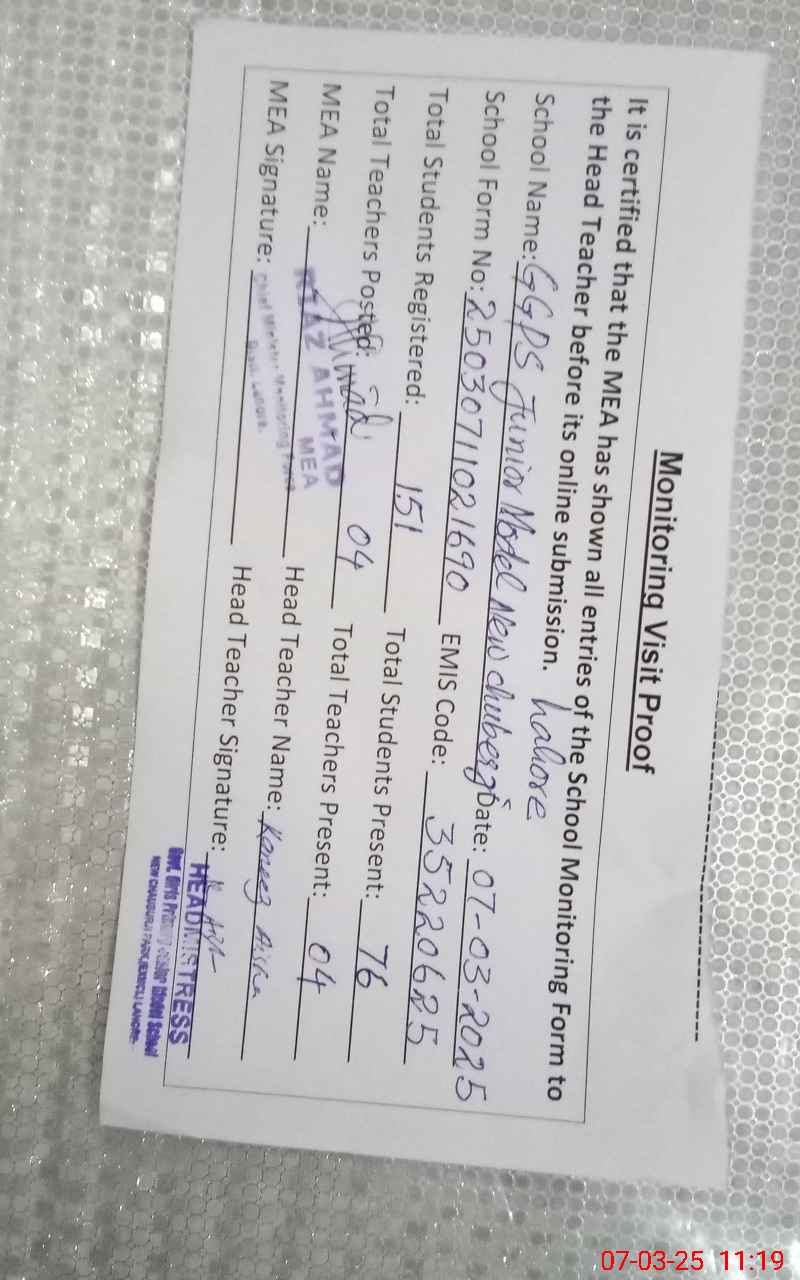 Monitoring Visit Proof
It is certified that the MEA has shown all entries of the School Monitoring Form to
the Head Teacher before its online submission. Lahore
School Name: GGPS Junior Model New Chuberji Date: 07-03-2025
School Form No: 25030711021690 EMIS Code: 35220625
Total Students Registered: 151 Total Students Present: 76
Total Teachers Posted: 04 Total Teachers Present: 04
MEA Name: Head Teacher Name: Kaneez Aisha
AHMAD
MEA
MEA Signature: Head Teacher Signature:
Chief Minister Monitoring Force
HEADMISTRESS
Govt. Girls Primary Junior Model School
07-03-25 11:19